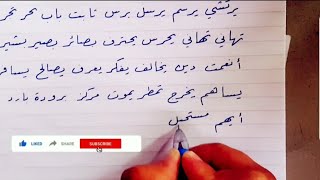 يرتشي يرسم يرسل برس ثابت باب بحر تحر
تهاني تهاني يحرس يحترف بصائر بصير بشير
أنعمت دين يخالف يفكر يعرف يصالح يسافر
يساهم يخرج تخطر يموت مركز برودة بارد
أيهم مستحيل
LIKED SHARE SUBSCRIBE